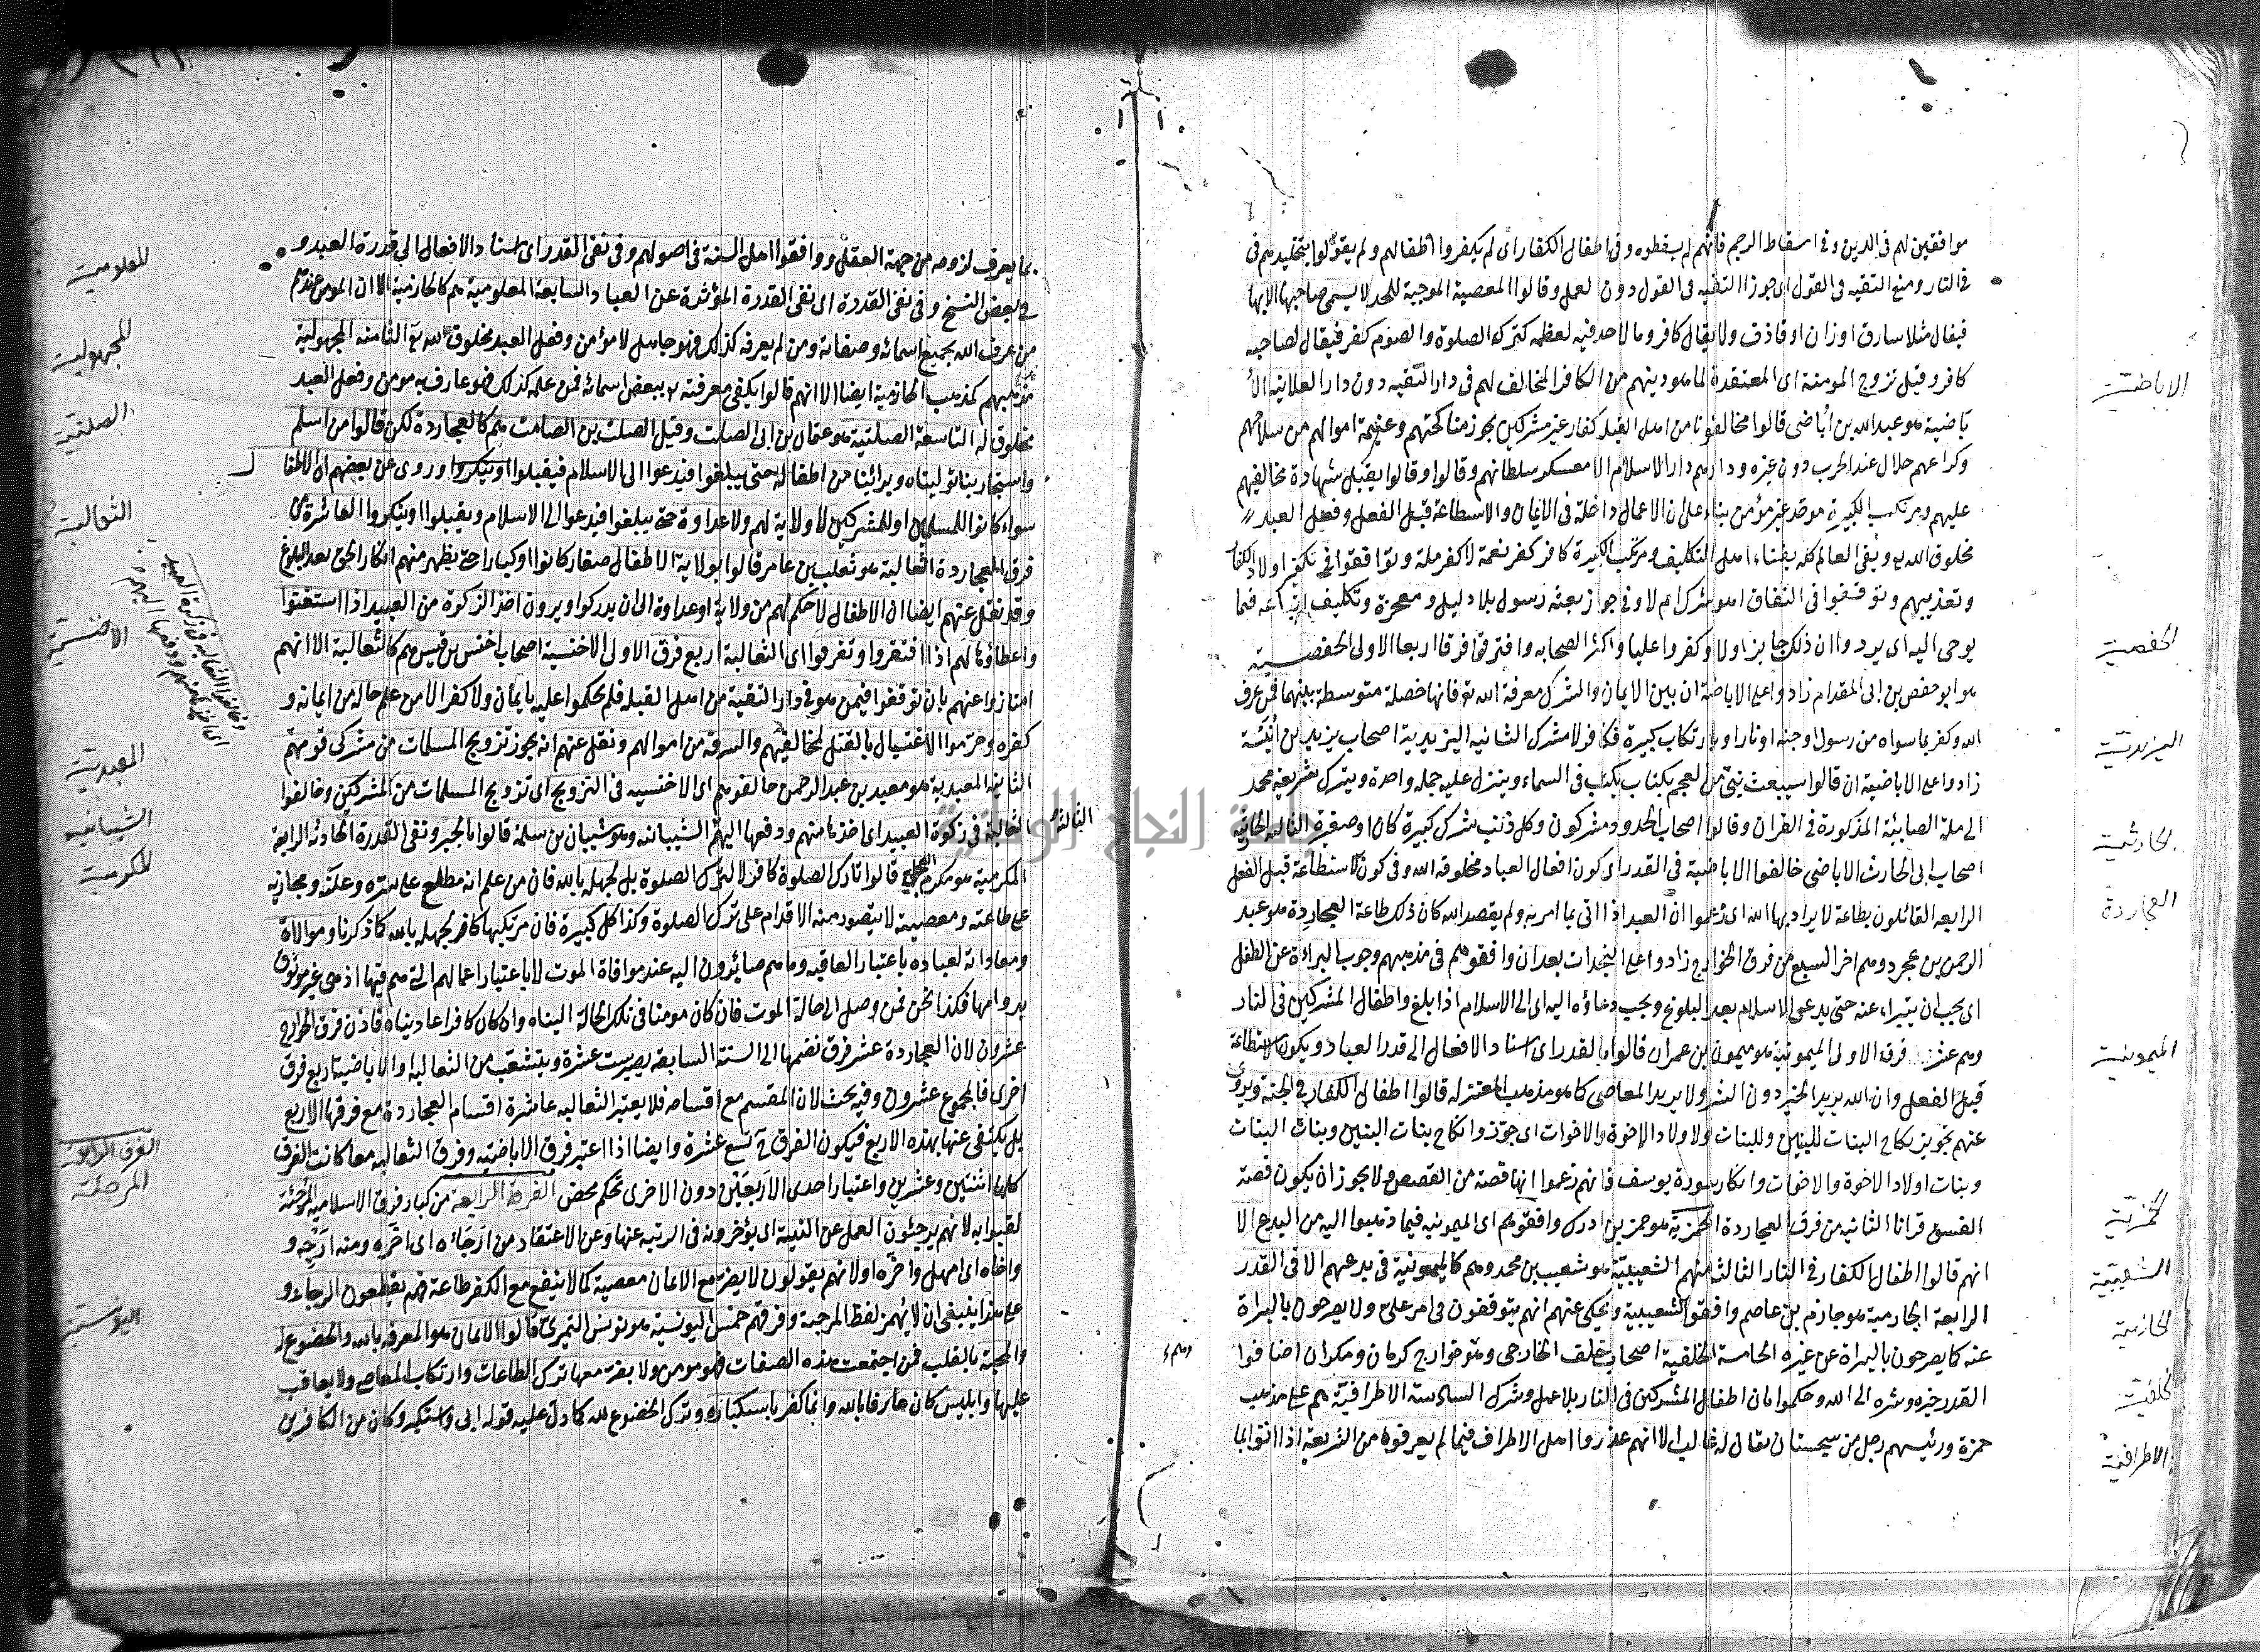 موافقين لهم فى الدين وفى اسقاط الرجم فانهم لم يسقطوه وفى اطفال الكفار اى لم يكفروا اطفالهم ولم يقولوا بتخليدهم فى
فى النار ومنع التقيه فى القول اى جوزا التقيه فى القول دون العمل وقالوا المعصية الموجبة للحد لا يسمى صاحبها الا بها
فيقال مثلا سارق او زان او قاذف ولا يقال كافر وما لا حد فيه لعظمه كترك الصلوة والصوم كفر فيقال لصاحبه
كافر وقيل تزوج المومنة اى المعتقدة لما هو دينهم من الكافر المخالف لهم فى دار التقيه دون دار العلانيه الأ
باضية هو عبد الله بن أباضى قالوا مخالفونا من اهل القبلة كفار غير مشركين يجوز مناكحتهم وغنيمة اموالهم من سلاحهم
وكراعهم حلال عند الحرب دون غيره ودارهم دار الاسلام الا معسكر سلطانهم وقالوا وقالوا يقبل شهادة مخالفيهم
عليهم ومرتكب الكبيرة موحد غير مؤمن بناء على ان الاعمال داخلة فى الايمان والاستطاعة قبل الفعل وفعل العبد
مخلوق الله تع ويفنى العالم كله بفناء اهل التكليف ومرتكب الكبيرة كافر كفر نعمة لا كفر ملة وتوافقوا فى تكفير اولاد الكفار
وتعذيبهم وتوقفوا فى النفاق اهو شرك ام لا وفى جواز بعثه رسول بلا دليل ومعجزة وتكليف اتباعه فيما
يوحى اليه اى يردوا ان ذلك جايز اولا وكفروا عليا واكثر الصحابه وافترقوا فرقا اربعا الاولى الحفصية
هو ابو حفص بن ابى المقدام زادوا على الاباضية ان بين الايمان والشرك معرفة الله تع فانها خصلة متوسطة بينهما فمن عرف
الله وكفر بما سواه من رسول او جنه او نار او بارتكاب كبيرة فكافر لا مشرك الثانيه اليزيدية اصحاب يزيد بن أنيسة
زادوا على الاباضية ان قالوا سيبعث نبى من العجم بكتاب يكتب فى السماء وينزل عليه جمله واحدة ويترك شريعة محمد
الى ملة الصابئة المذكورة فى القران وقالوا اصحاب الحدود مشركون وكل ذنب شرك كبيرة كان او صغيرة الثالثه الحارثيه
اصحاب ابى الحارث الاباضى خالفوا الاباضية فى القدر اى كون افعال العباد مخلوقه الله وفى كون الاستطاعة قبل الفعل
الرابعه القائلون بطاعة لا يراد بها الله اى زعموا ان العبد اذا اتى بما امر به ولم يقصد الله كان ذلك طاعة العجاردة هو عبد
الرحمن بن عجرد وهم اخر السبع من فرق الخوارج زادوا على النجدات بعد ان وافقوهم فى مذهبهم وجوب البراءة عن الطفل
اى يجب ان يتبراء عنه حتى يدعى الاسلام بعد البلوغ ويجب دعاؤه اليه اى الى الاسلام اذا بلغ واطفال المشركين فى النار
وهم عشر فرقه الاولى الميمونية هو ميمون بن عمران قالوا بالقدر اى اسناد الافعال الى قدر العباد ويكون الاستطاعة
قبل الفعل وان الله يريد الخير دون الشر ولا يريد المعاصى كما هو مذهب المعتزله قالوا اطفال الكفار فى الجنة ويروى
عنهم تجويز نكاح البنات للبنين وللبنات ولاولاد الاخوة والاخوات اى جوزوا نكاح بنات البنين وبنات البنات
وبنات اولاد الاخوة والاخوات وانكار سورة يوسف فانهم زعموا انها قصة من القصص ولا يجوز ان يكون قصة
الفسق قرانا الثانيه من فرق العجاردة الحمزية هو حمزة بن ادرك وافقوهم اى الميمونيه فيما ذهبوا اليه من البدع الا
انهم قالوا اطفال الكفار فى النار الثالثة منهم الشعيبية هو شعيب بن محمد وهم كالميمونية فى بدعهم الا فى القدر
الرابعة الحازمية هو حازم بن عاصم وافقوا الشعيبية ويحكى عنهم انهم يتوقفون فى امر على ولا يصرحون بالبراة
عنه كما يصرحون بالبراة عن غيره الخامسة الخلفية اصحاب خلف الخارجى وهو خوارج كرمان ومكران اضافوا
القدر خيره وشره الى الله وحكموا بان اطفال المشركين فى النار بلا عمل وشرك السادسة الاطرافية هم على مذهب
حمزة ورئيسهم رجل من سجستان يقال له غالب الا انهم عذروا اهل الاطراف فيما لم يعرفوه من الشريعة اذا اتوا بما
الاباضية
الحفصية
اليزيدية
الحارثية
العجاردة
الميمونية
الحمزية
الشعيبية
الحازمية
الخلفية
الاطرافية
يما يعرف لزومه من جهة العقل ووافقوا اهل السنة فى اصولهم وفى نفى القدر اى اسناد الافعال الى قدرة العبد و
فى بعض النسخ وفى نفى القدرة اى نفى القدرة المؤثرة عن العباد السابعة المعلومية هم كالحازمية الا ان المومن عندهم
من عرف الله بجميع اسمائه وصفاته ومن لم يعرفه كذلك فهو جاهل لا مؤمن وفعل العبد مخلوق لله تع الثامنه المجهولية
مذهبهم كمذهب الحازمية ايضا الا انهم قالوا يكفى معرفته ببعض اسمائه فمن علمه كذلك فهو عارف به مومن وفعل العبد
مخلوق له التاسعة الصلتية هو عثمان بن ابى الصلت وقيل الصلت بن الصامت هم كالعجاردة لكن قالوا من اسلم
واستجار بنا توليناه وبرائينا من اطفاله حتى يبلغوا فيدعوا الى الاسلام فيقبلوا او ينكروا وروى عن بعضهم ان الاطفا
سواء كانوا للمسلمين او للمشركين لا ولاية لهم ولا عداوة حتى يبلغوا فيدعوا الى الاسلام ويقبلوا او ينكروا العاشرة من
فرق العجاردة الثعالبة هو ثعلب بن عامر قالوا بولاية الاطفال صغار كانوا او كبارا حتى يظهر منهم انكار الحق بعد البلوغ
وقد نقل عنهم ايضا ان الاطفال لا حكم لهم من ولاية او عداوة الى ان يدركوا ويرون اخذ الزكوة من العبيد اذا استغنوا
واعطاؤها لهم اذا افتقروا وتفرقوا اى الثعالبة اربع فرق الاولى الاخنسية اصحاب اخنس بن قيس هم كالثعالبة الا انهم
امتازوا عنهم بان توقفوا فيمن هو فى دار التقية من اهل القبله فلم يحكموا عليه بايمان ولا كفر الا من علم حاله من ايمانه و
كفره وحرموا الاغتيال بالقتل لمخالفيهم والسرقة من اموالهم ونقل عنهم انه يجوز تزويج المسلمات من مشركى قومهم
الثانية المعبدية هو معبد بن عبد الرحمن خالفوهم اى الاخنسيه فى التزويج اى تزويج المسلمات من المشركين وخالفوا
الثعالبة فى زكوة العبيد اى اخذها منهم ودفعها اليهم الشيبانيه وهو شيبان بن سلمة قالوا بالجبر ونفى القدرة الحادثة الرابعة
المكرمية هو مكرم العجلى قالوا تارك الصلوة كافر لا لترك الصلوة بل لجهله بالله فان من علم انه مطلع على سره وعلنه ومجازيه
على طاعته ومعصيته لا يتصور منه الاقدام على ترك الصلوة وكذا كل كبيرة فان مرتكبها كافر لجهله بالله كما ذكرنا وموالاة
ومعاداته لعباده باعتبار العاقبه وما هم صائرون اليه عند موافاة الموت لا باعتبار اعمالهم التى هم فيها اذ هى غير موثوق
بدوامها فكذا نحن فمن وصل الى حالة الموت فان كان مومنا فى تلك الحالة اليناه وان كان كافرا عاديناه فاذن فرق الخوارج
عشرون لان العجاردة عشر فرق نضمها الى الستة السابقة يصير ست عشرة ويتشعب من الثعالبه والاباضية اربع فرق
اخرى فالمجموع عشرون وفيه بحث لان المقسم مع اقسامه فلا يعتبر الثعالبه عاشرة اقسام العجاردة مع فرقها الاربع
بل يكتفى عنها بهذه الاربع فيكون الفرق تسع عشرة وايضا اذا اعتبر فرق الاباضية وفرق الثعالبه معا كانت الفرق
كلها اثنتين وعشرين واعتبار احدى الاربعتين دون الاخرى تحكم محض الفرقة الرابعة من كبار فرق الاسلامية المرجئة
لقبوا به لانهم يرجئون العمل عن النية اى يؤخرونه فى الرتبه عنها وعن الاعتقاد من ارجاءه اى اخره ومنه ارجه و
واخاه اى امهله واخره او لانهم يقولون لا يضر مع الايمان معصية كما لا ينفع مع الكفر طاعة فهم يعطون الرجاء و
على هذا ينبغى ان لا يهمز لفظ المرجية وفرقهم خمس اليونسية هو يونس النميرى قالوا الايمان هو المعرفه بالله والخضوع له
والمحبة بالقلب فمن اجتمعت هذه الصفات فهو مومن ولا يضره معها ترك الطاعات وارتكاب المعاصى ولا يعاقب
عليها وابليس كان عارفا بالله وانما كفر باستكباره وترك الخضوع لله كما دل عليه قوله ابى واستكبر وكان من الكافرين
المعلومية
المجهولية
الصلتية
الثعالبة
الاخنسية
المعبدية
الشيبانيه
المكرمية
الفرق الرابعة
المرجئة
اليونسية
الثالثة
جامعة النجاح الوطنية